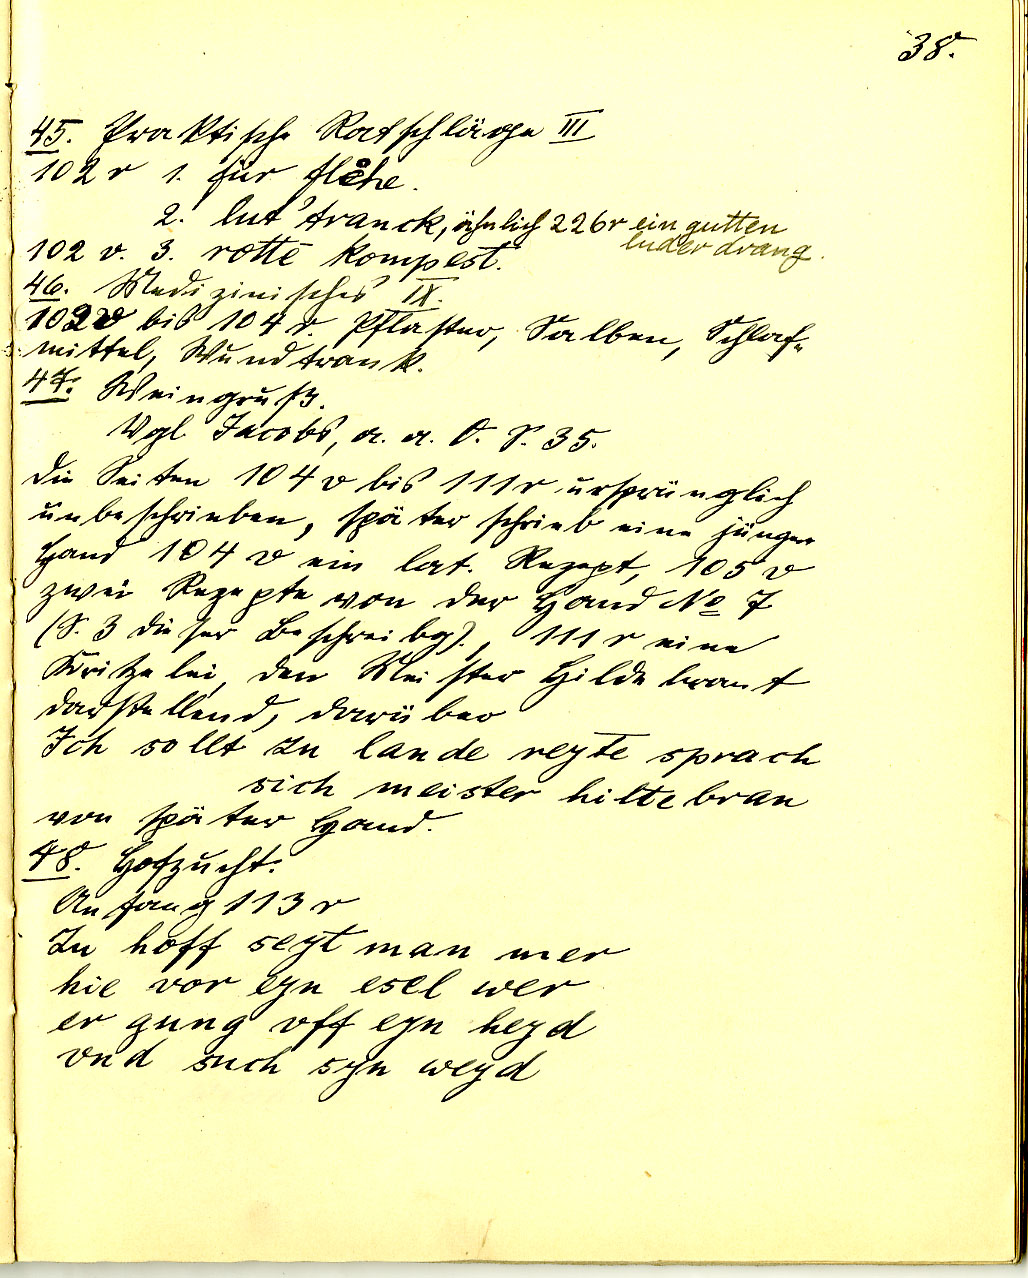 38.
45. Praktische Ratschläge III
102 r 1. für flehe.
2. lut tranck, ähnlich 226r ein gutten
luder drang.
102 v. 3. rotte kompest.
46. Medizinisches IX.
102v bis 104 r. Pflaster, Salben, Schlaf-
mittel, Wundtrank.
47. Weingruß.
Vgl Jacobs, a. a. O. S. 35.
Die Seiten 104 v bis 111r ursprünglich
unbeschrieben, später schrieb eine jüngere
Hand 104 v ein lat. Rezept, 105 v
zwei Rezepte von der Hand No 7
(S. 3 dieser Beschreibg)., 111 r eine
Kritzelei, den Meister Hildebrant
darstellend, darüber
Ich sollt zu lande reyte sprach
sich meister hiltebran
von später Hand.
48. Hofzucht.
Anfang 113 r
Zu hoff seyt man mer
hie vor eyn esel wer
er gung vff eyn heyd
vnd such syn weyd